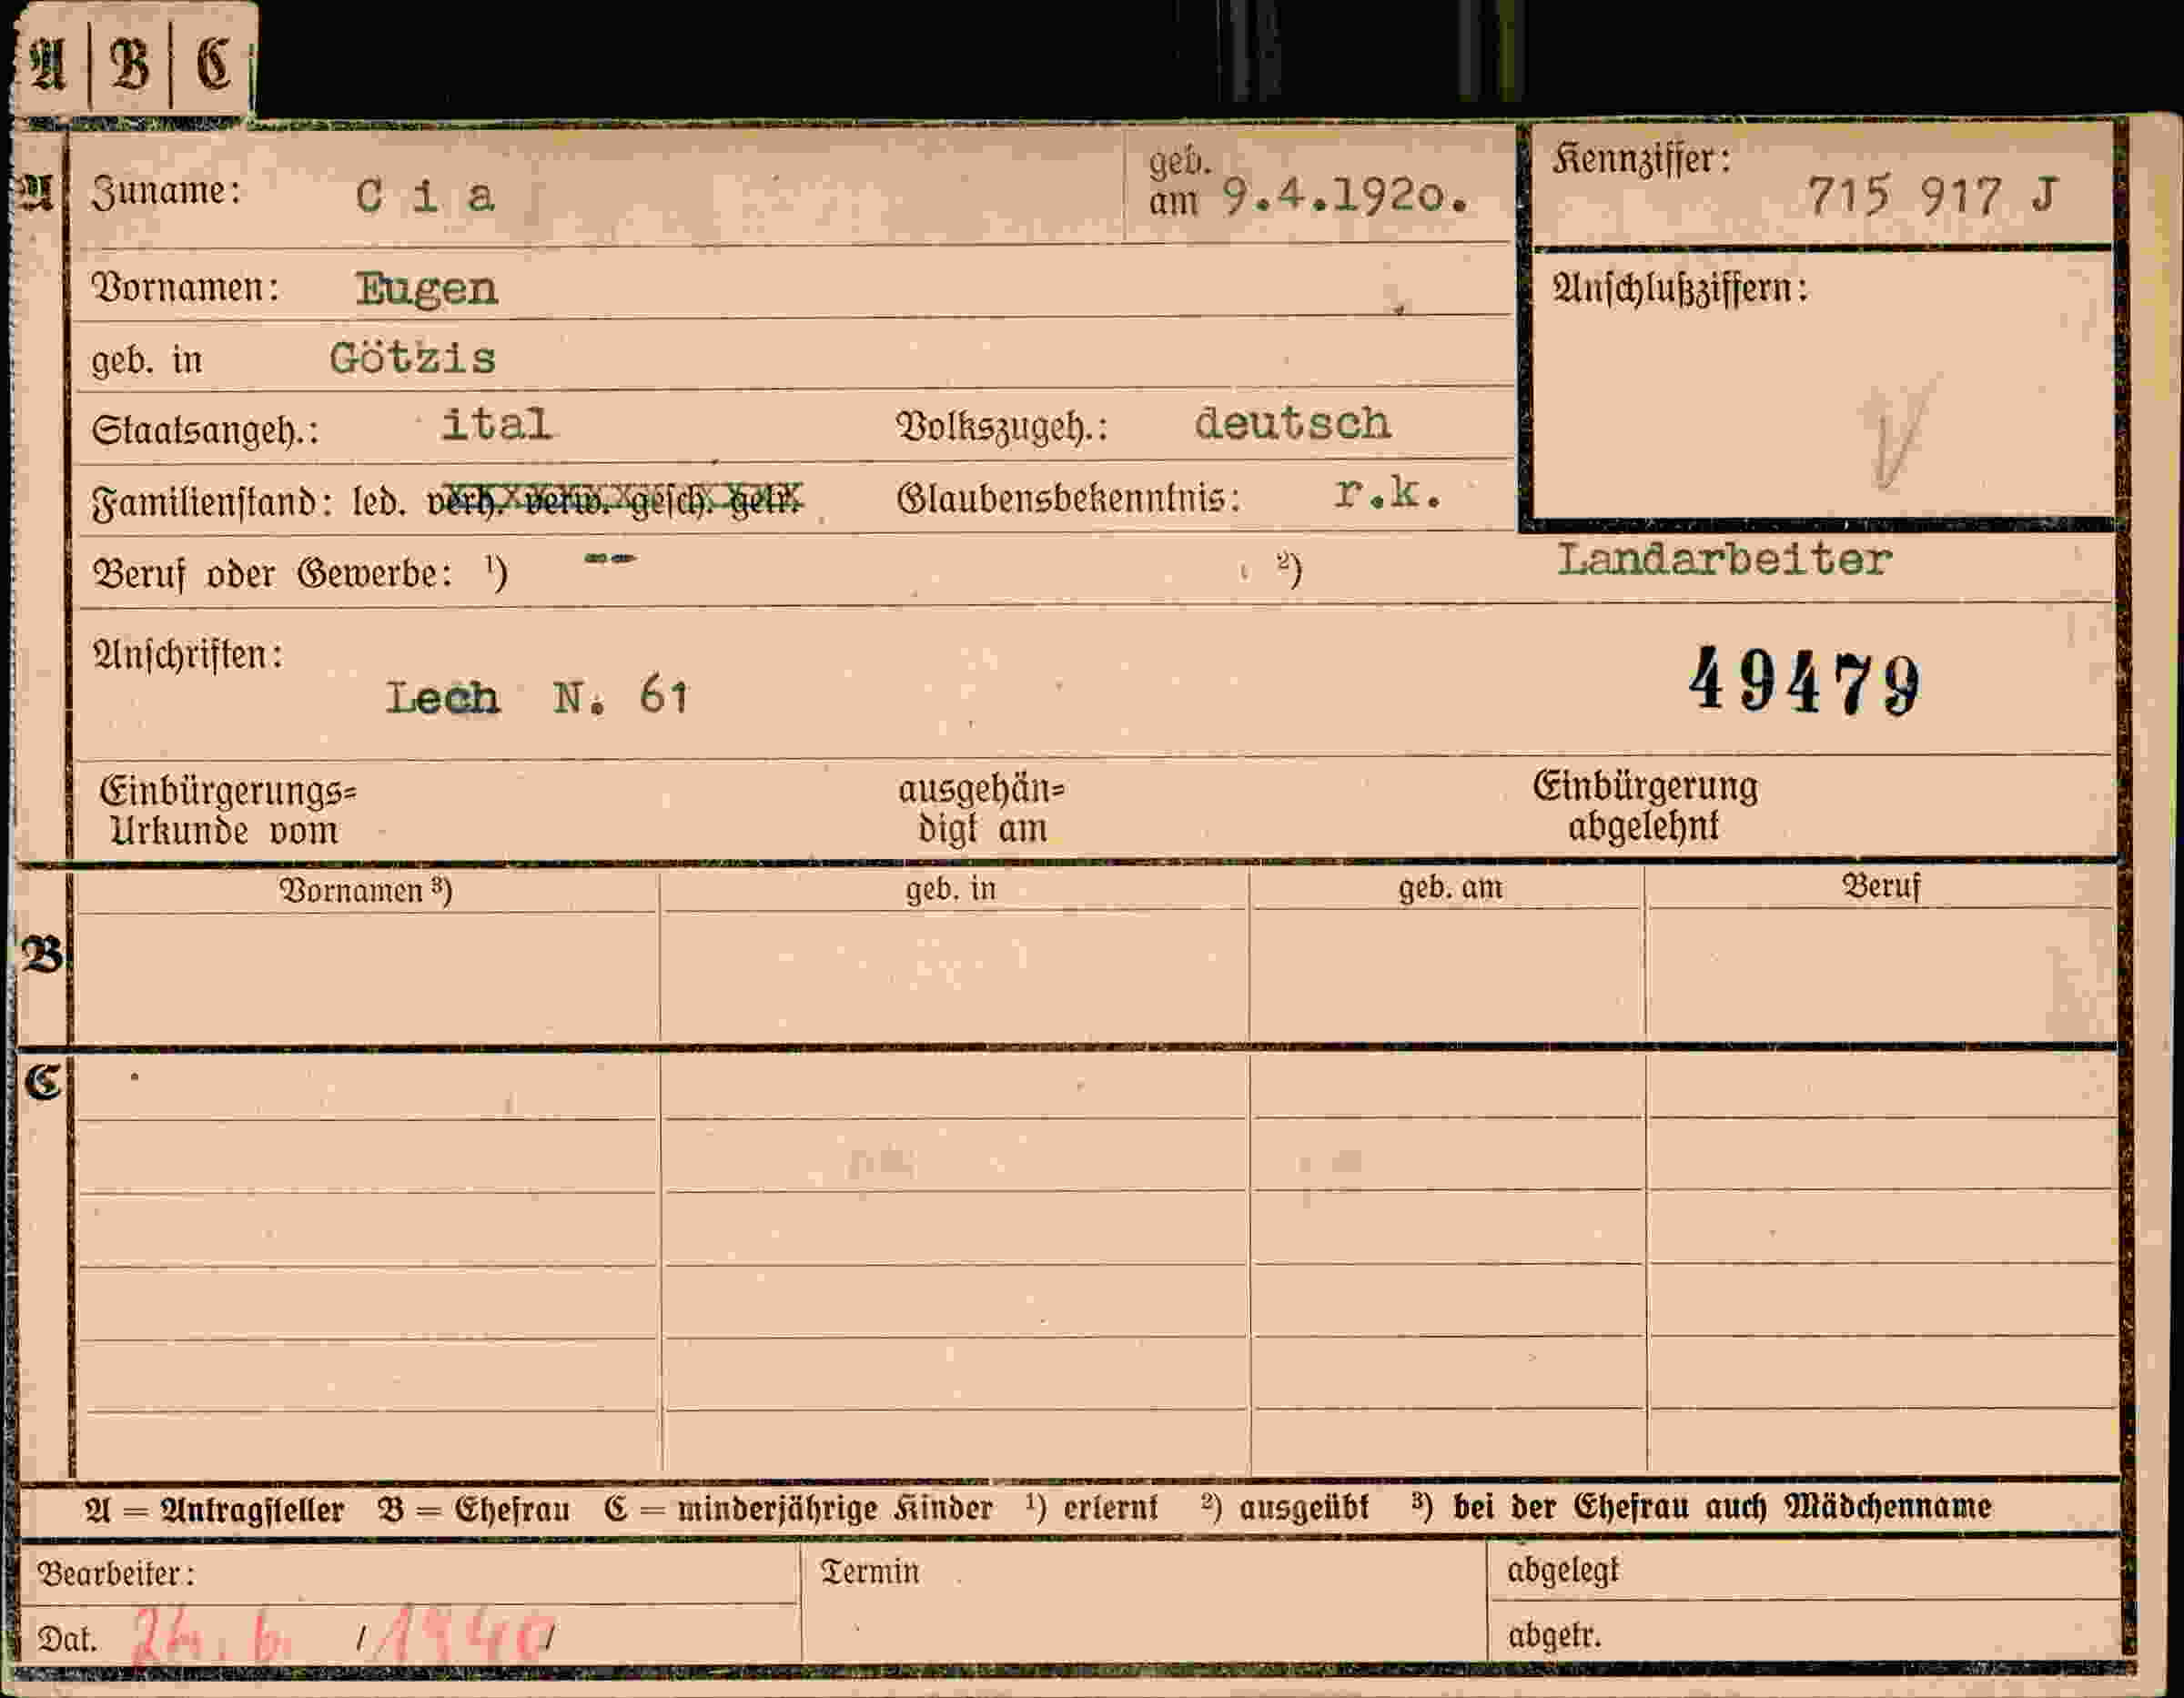 A | B | C
A Zuname: C i a geb. am 9.4.192o. Kennziffer: 715 917 J
Vornamen: Eugen Anschlußziffern:
geb. in Götzis
Staatsangeh.: ital Volkszugeh.: deutsch
Familienstand: led. verh. verw. gesch. getr. Glaubensbekenntnis: r.k.
Beruf oder Gewerbe: ¹) -- ²) Landarbeiter
Anschriften:
Lech N. 61 49479
Einbürgerungs= ausgehän= Einbürgerung
Urkunde vom digt am abgelehnt
Vornamen ³) geb. in geb. am Beruf
B
C
A = Antragsteller B = Ehefrau C = minderjährige Kinder ¹) erlernt ²) ausgeübt ³) bei der Ehefrau auch Mädchenname
Bearbeiter: Termin abgelegt
Dat. 24. 6. / 1940 / abgetr.